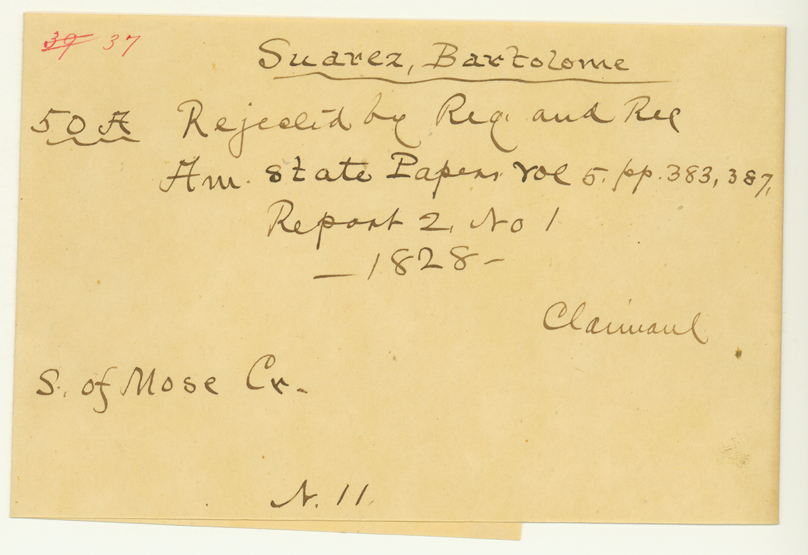 39 37
Suarez, Bartolome
50 A Rejected by Reg. and Rec
Am. State Papers vol 5. pp. 383, 387,
Report 2, No 1
— 1828 –
Claimant
S. of Mose Cr.
N. 11.